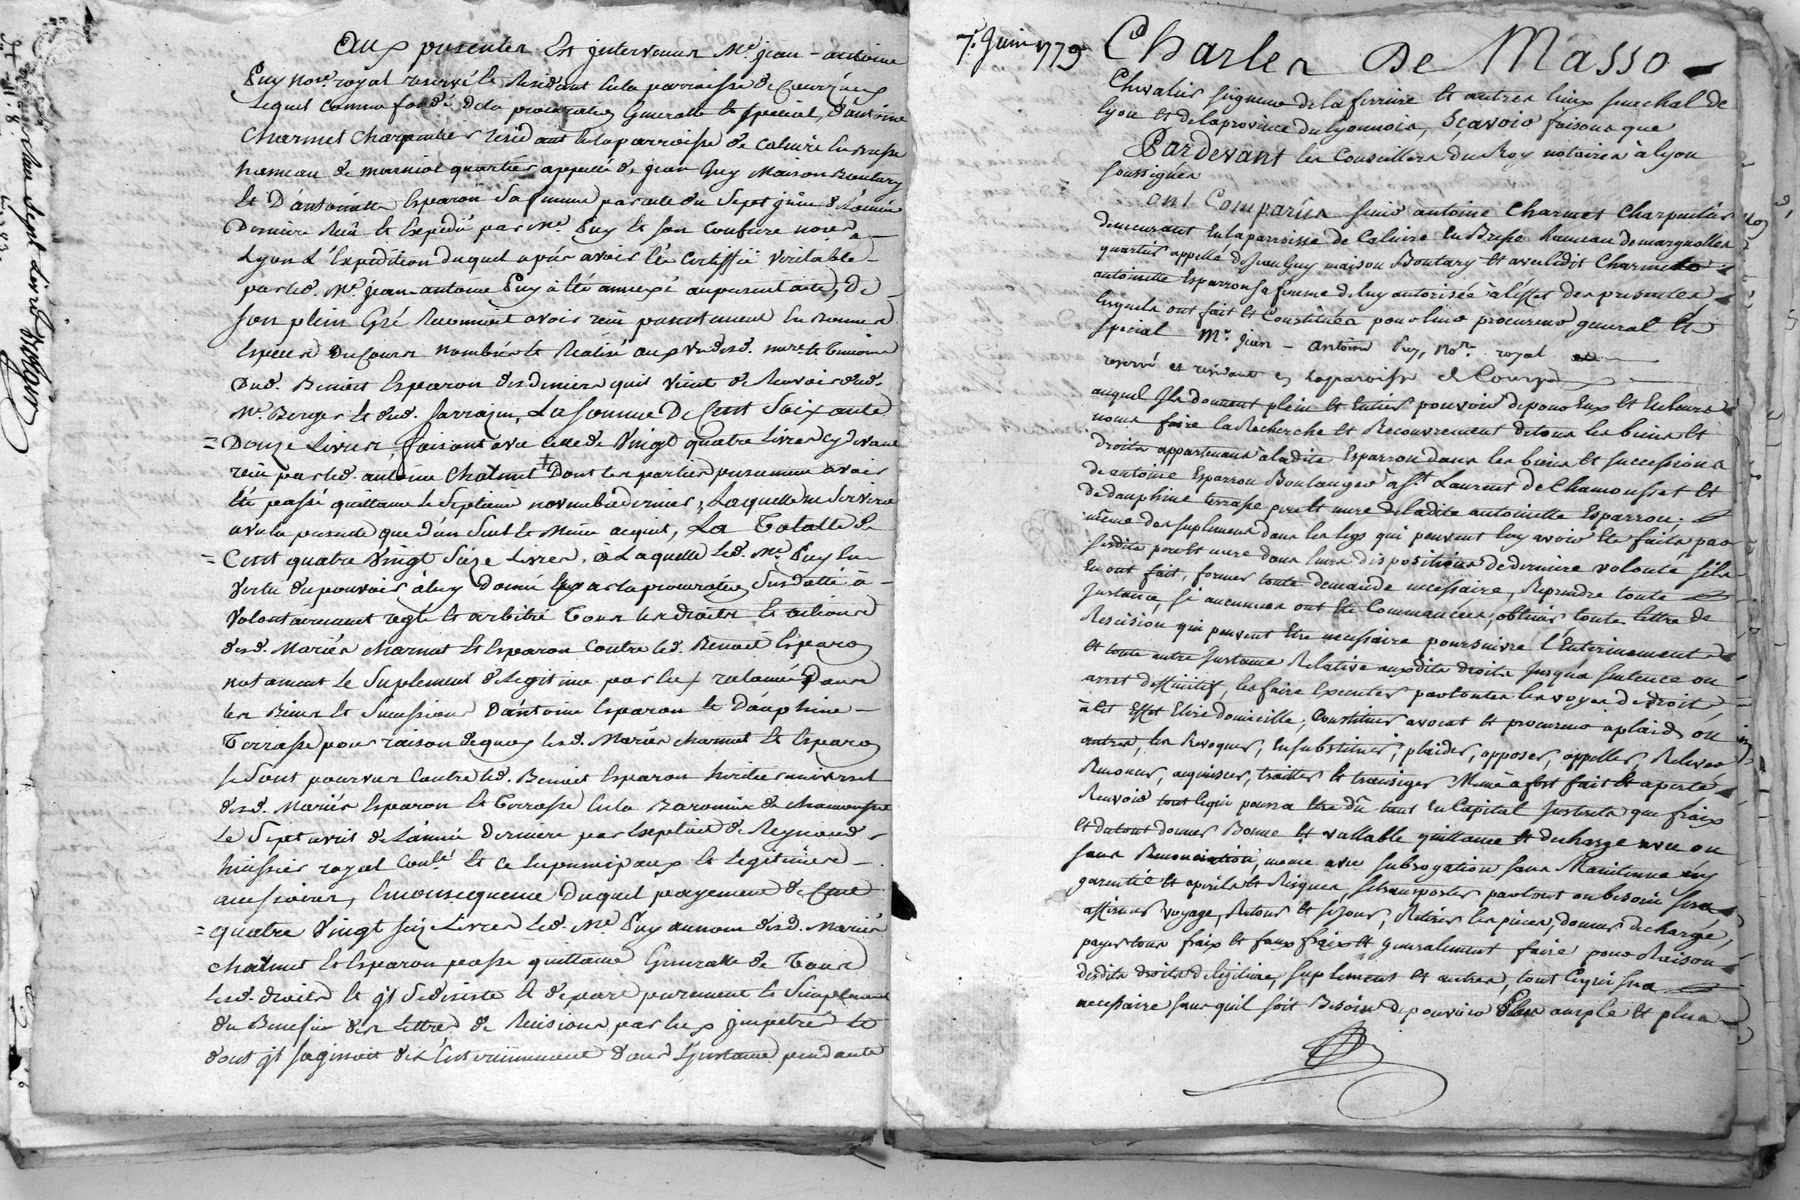 Aux presentes Est intervenu Me. jean-antoine
Puy nore. royal reservé et Resident en la parroisse de Courzieux
Lequel comme fondé de la procuration Generalle et specialle, d'antoine
Charmet Charpentier residant en la parroisse de Caluire En Bresse
hameau de quartier appellé de jean Guy Maison Boutary
Et D'antoinette Esparon Sa femme par acte du Sept juin de L'année
Derniere Reçu et Expedié par Me. Puy et son Confrere nores. a
Lyon L'Expedition duquel après avoir été Certiffié Veritable
par led. Me. jean-antoine Puy a été annexé au present acte, De
son plein Gré Reconnoit avoir reçu presentement En Bonnes
Especes Du Cours nombrées et Realisé aux vue desd. nore. et temoins
Dud. Benoit Esparon des deniers quil vient de Recevoir dud.
Mr. Berger et dud. Sarrazin, La somme De Cent Soixante
= Douze Livres, faisant avec celle de Vingt quatre Livres cy devant
reçu par led. antoine Chalmet + Dont les parties presument avoir
été passé quittance le Septieme novembre dernier, Laquelle ne servira
avec la presente que d'un seul et Meme acquit, La Totalle de
= Cent quatre Vingt Seize Livres, à Laquelle led. Me. Puy En
Vertu du pouvoir à luy Donné par la procuration Susdatté à
Volontairement reglé et arbitré Tous les droits et actions
desd. Mariés Charmet et Esparon Contre led. Benoit Esparon
notament le Suplement de legitime par eux reclamé Dans
les Biens et Succession D'antoine Esparon et Dauphine
Terrasse pour raison de quoy lesd. Mariés Charmet et Esparon
se sont pourvus Contre led. Benoit Esparon heritier universel
desd. Mariés Esparon et Terrasse en la Baronnie de chamousset
Le Sept avril de L'année Derniere par Exploit de Reynaud
huissier royal Conlé. Et ce en principaux et Legitimes
accessoires, En consequence Duquel payement de Cent
= quatre Vingt seize Livres led. Me. Puy au nom desd. Mariés
Chalmet et Esparon passe quittance Generalle de Tous
lesd. droits et se desiste et depart purement et Simplement
du Benefice des Lettres de Recision par eux impetrés et
dont il s'agissoit de L'Enterinement dans L'Instance pendante
7e. Juin 1779 Charles De Masso
Chevalier seigneur de la ferriere et autres lieux senechal de
lyon et de la province du lyonnois, Scavoir faisons que
Pardevant les Conseillers du Roy notaires à lyon
soussignes
ont Comparûs sieur antoine Charmet Charpentier
demeurant En la parroisse de Caluire En Bresse hameau de margnolles
quartier appellé de Jean Guy maison Boutary et avec ledit Charmet
antoinette Esparron sa femme de luy autorisée à l'effet des presentes
lesquels ont fait et Constitués pour leur procureur general et
special Mr. Jean-Antoine Puy, nore. royal
reservé et residant en la paroisse de Courzieu
auquel Ils donnent plein et Entier pouvoir de pour Eux et En leurs
noms faire la Recherche et Recouvrement de tous les biens et
droits appartenans à ladite Esparron dans les biens et successions
de antoine Esparron Boulanger à St. Laurent de Chamousset et
de dauphine terrasse pere et mere de ladite antoinette Esparron,
même des suplemens dans les legs qui peuvent luy avoir été faits par
sesdits pere et mere dans leurs dispositions de derniere volonté s'ils
En ont fait, former toute demande necessaire, Reprendre toute
Instance, si aucunes ont été Commancées, obtenir toute lettre de
Rescision qui peuvent Etre necessaire poursuivre l'Enterinement
et toute autre Instance Relative auxdits droits Jusqua sentence ou
arret deffinitif, les faire Executer par toutes les voyes de droit,
à cet Effet Elire domicille, Constituer avocat et procureur aplaids ou
autres, les Revoquer, En substituer, plaider, opposer, appeller, Relever
Renoncer, acquiescer, traitter et transiger Meme à fort fait et à perte
Recevoir tout ce qui pourra etre dû tant En Capital Interets que fraix
et du tout donner Bonne et vallable quittance et decharge avec ou
sans Renonciation, meme avec subrogation sans Maintenue ny
garentie et à perils et Risques se transporter partout ou besoin sera
affirmer voyage, Retour et sejour, Retirer les pieces, donner decharge,
payer tous fraix et faux fraix et generalement faire pour Raison
desdits droits de legitime, suplement et autres, tout ce qui sera
necessaire sans quil soit Besoin de pouvoir Plus ample et plus